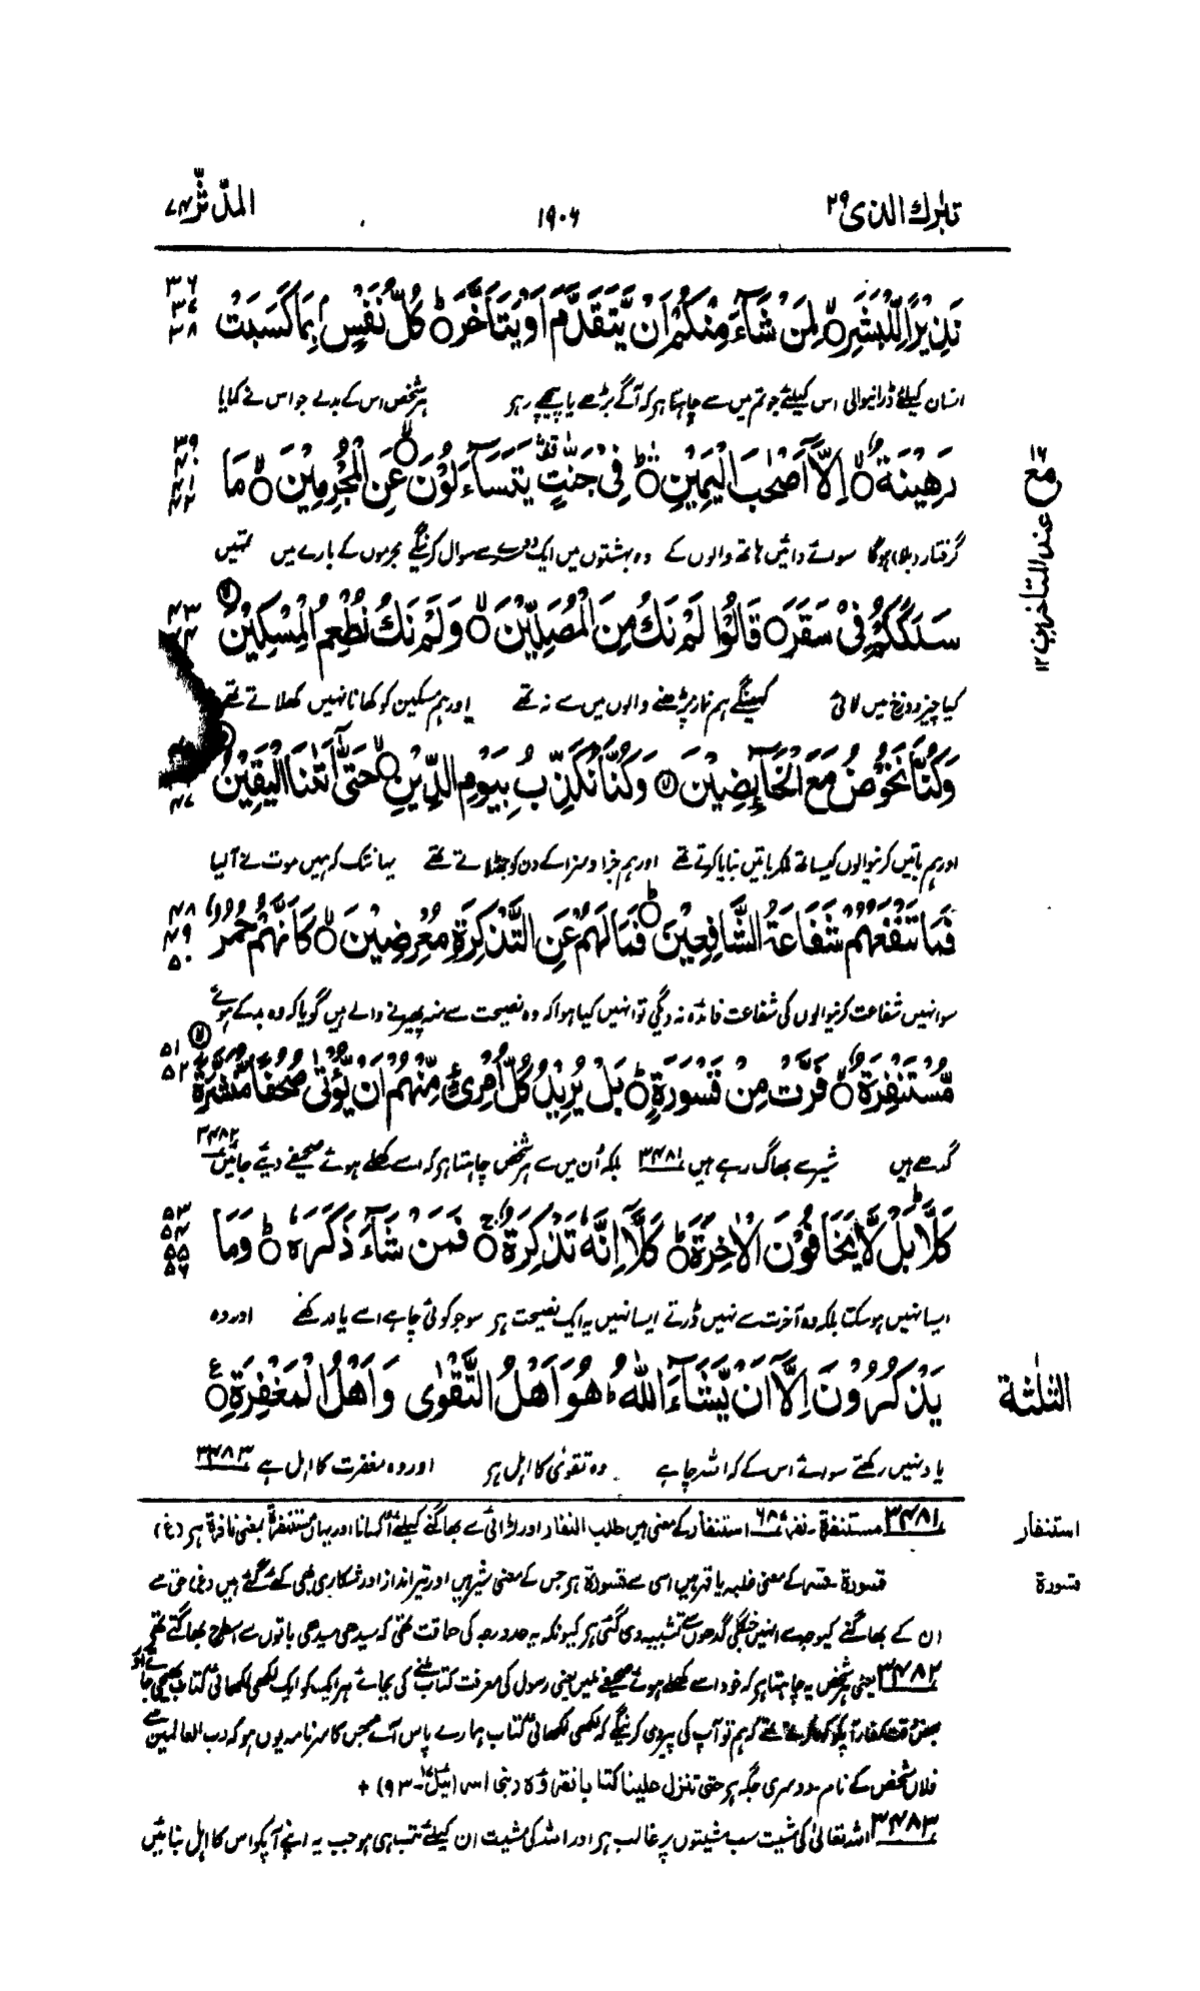 تبٰرك الذی ۲۹
۱۹۰۶
المدّثّر ۷۴
نَذِيْرًا لِّلْبَشَرِ ۙ لِمَنْ شَآءَ مِنْكُمْ اَنْ يَّتَقَدَّمَ اَوْ يَتَاَخَّرَ ؕ كُلُّ نَفْسٍۭ بِمَا كَسَبَتْ
۳۶
۳۷
۳۸
انسان کیلئے ڈرانیوالی اس کیلئے جو تم میں سے چاہتا ہر کہ آگے بڑھے یا پیچھے رہر ہر شخص اس کے بدلے جو اس نے کمایا
رَهِيْنَةٌ ۙ اِلَّاۤ اَصْحٰبَ الْيَمِيْنِ ؕۛ فِیْ جَنّٰتٍ ۛ يَتَسَآءَلُوْنَ ۙ عَنِ الْمُجْرِمِيْنَ ۙ مَا
۳۹
۴۰
۴۱
۴۲
مع ۱۶ عند المتاخرین ۱۲
گرفتار (بلا) ہوگا سوائے دائیں ہاتھ والوں کے وہ بہشتوں میں ایک دوسرے سے سوال کرینگے مجرموں کے بارے میں تمہیں
سَلَكَكُمْ فِیْ سَقَرَ ۝ قَالُوْا لَمْ نَكُ مِنَ الْمُصَلِّيْنَ ۙ وَلَمْ نَكُ نُطْعِمُ الْمِسْكِيْنَ ۙ
۴۳
کیا چیز دوزخ میں لائی کہینگے ہم نماز پڑھنے والوں میں سے نہ تھے اور ہم مسکین کو کھانا نہیں کھلاتے تھے
وَكُنَّا نَخُوْضُ مَعَ الْخَآئِضِيْنَ ۙ وَكُنَّا نُكَذِّبُ بِيَوْمِ الدِّيْنِ ۙ حَتّٰۤى اَتٰىنَا الْيَقِيْنُ
۴۷
اور ہم باتیں کرنیوالوں کیساتھ ملکر باتیں بنایا کرتے تھے اور ہم جزا و سزا کے دن کو جھٹلاتے تھے یہانتک کہ ہمیں موت نے آلیا
فَمَا تَنْفَعُهُمْ شَفَاعَةُ الشّٰفِعِيْنَ ؕ فَمَا لَهُمْ عَنِ التَّذْكِرَةِ مُعْرِضِيْنَ ۙ كَاَنَّهُمْ حُمُرٌ
۴۸
۴۹
۵۰
سو انہیں شفاعت کرنیوالوں کی شفاعت فائدہ نہ دیگی تو انہیں کیا ہوا کہ وہ نصیحت سے منہ پھیرنے والے ہیں گویا کہ وہ بدکے ہوئے
مُّسْتَنْفِرَةٌ ۙ فَرَّتْ مِنْ قَسْوَرَةٍ ؕ بَلْ يُرِيْدُ كُلُّ امْرِئٍ مِّنْهُمْ اَنْ يُّؤْتٰى صُحُفًا مُّنَشَّرَةً
۵۱
۵۲
گدھے ہیں شیر سے بھاگ رہے ہیں ۳۴۸۱ بلکہ اُن میں سے ہر شخص چاہتا ہر کہ اسے کھلے ہوئے صحیفے دیئے جائیں ۳۴۸۲
كَلَّا ؕ بَلْ لَّا يَخَافُوْنَ الْاٰخِرَةَ ؕ كَلَّاۤ اِنَّهٗ تَذْكِرَةٌ ۚ فَمَنْ شَآءَ ذَكَرَهٗ ؕ وَمَا
۵۳
۵۴
۵۵
۵۶
ایسا نہیں ہوسکتا بلکہ وہ آخرت سے نہیں ڈرتے ایسا نہیں یہ ایک نصیحت ہر سو جو کوئی چاہے اسے یاد رکھے اور وہ
يَذْكُرُوْنَ اِلَّاۤ اَنْ يَّشَآءَ اللّٰهُ ؕ هُوَ اَهْلُ التَّقْوٰى وَاَهْلُ الْمَغْفِرَةِ ۠
الثلٰثة
یاد نہیں رکھتے سوائے اس کے کہ اللہ چاہے وہ تقویٰ کا اہل ہر اور وہ مغفرت کا اہل ہے ۳۴۸۳
استنفار
۳۴۸۱ مستنفرة۔ نفر ۶۸ استنفار کے معنی ہیں طلب النفار اور لڑائی سے بھاگنے کیلئے اکسانا اور یہاں مستنفرة بمعنی نافرة ہر (غ)
قسورة
قسورة۔ قسر کے معنی غلبہ یا قہر ہیں اسی سے قسورة ہر جس کے معنی شیر ہیں اور تیر انداز اور شکاری بھی کئے گئے ہیں (غ) حق سے
ان کے بھاگنے کیوجہ سے انہیں جنگلی گدھوں سے تشبیہ دی گئی ہر کیونکہ یہ حد درجہ کی حماقت تھی کہ سیدھی سیدھی باتوں سے اسطرح بھاگتے تھے
۳۴۸۲ یعنی ہر شخص یہ چاہتا ہر کہ خود اسے کھلے ہوئے صحیفے ملیں یعنی رسول کی معرفت کتاب ملنے کی بجائے ہر ایک کو ایک لکھی لکھائی کتاب بھیجی جائے اور
بعض وقت کفار آپکو کہا کرتے تھے کہ ہم تو آپ کی پیروی کرینگے کہ لکھی لکھائی کتاب ہمارے پاس آئے جس کا سرنامہ یوں ہو کہ رب العالمین سے
فلاں شخص کے نام۔ دوسری جگہ ہر حتی تنزل علینا کتابا نقرؤہ (بنی اسرائیل ۔ ۹۳) +
۳۴۸۳ اللہ تعالیٰ کی مشیت سب مشیتوں پر غالب ہر اور اللہ کی مشیت ان کیلئے تب ہی ہو جب یہ اپنے آپکو اس کا اہل بنائیں